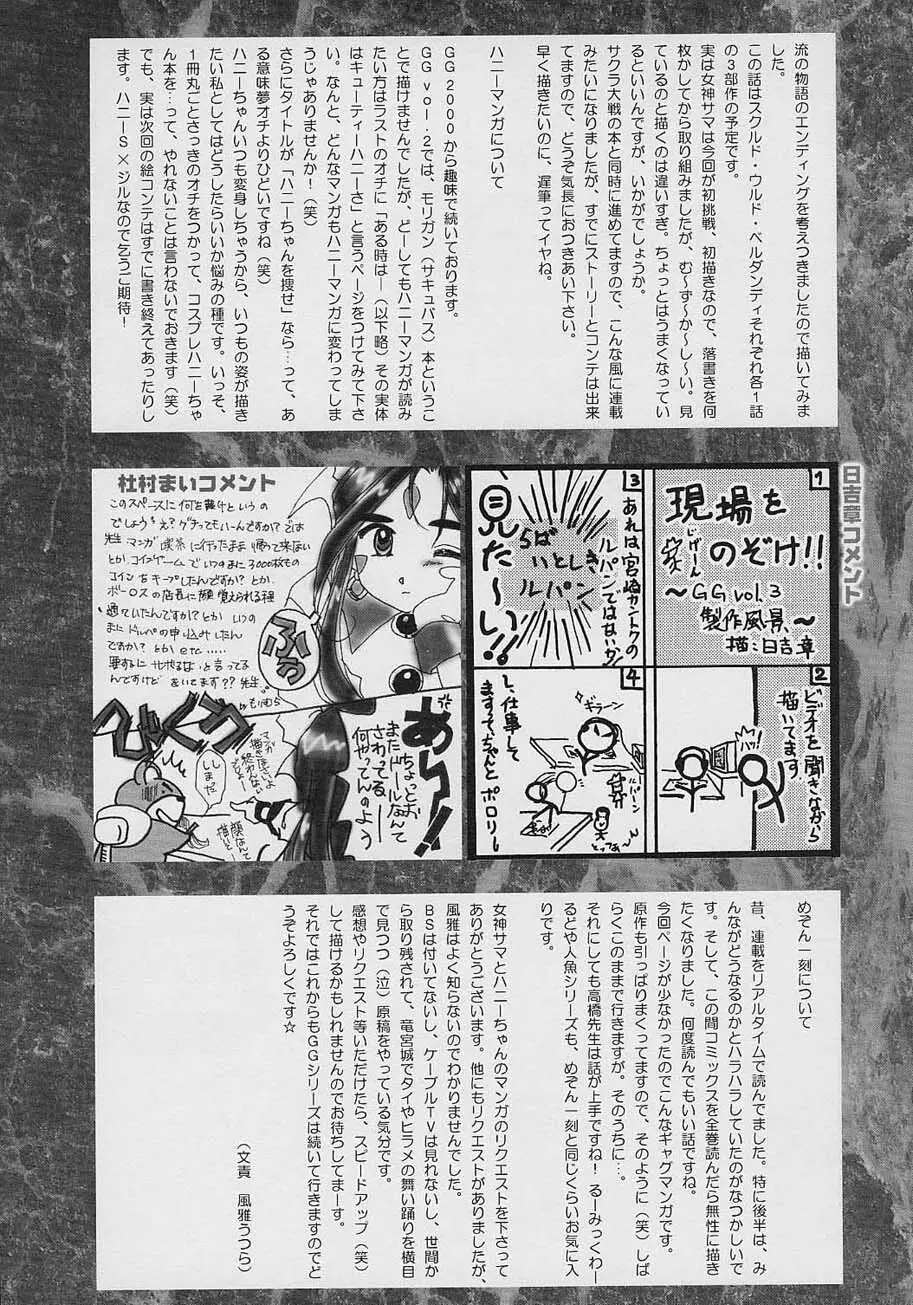 流の物語のエンディングを考えつきましたので描いてみま
した。
この話はスクルド・ウルド・ベルダンディそれぞれ各1話
の3部作の予定です。
実は女神サマは今回が初挑戦、初描きなので、落書きを何
枚かしてから取り組みましたが、む～ず～か～し～い。見
ているのと描くのは違いすぎ。ちょっとはうまくなってい
るといいんですが、いかがでしょうか。
サクラ大戦の本と同時に進めてますので、こんな風に連載
みたいになりましたが、すでにストーリーとコンテは出来
てますので、どうぞ気長におつきあい下さい。
早く描きたいのに、遅筆ってイヤね。
ハニーマンガについて
GG2000から趣味で続いております。
GGvol.2では、モリガン(サキュバス)本というこ
とで描けませんでしたが、どーしてもハニーマンガが読み
たい方はラストのオチに「ある時は―(以下略)その実体
はキューティーハニーさ」と言うページをつけてみて下さ
い。なんと、どんなマンガもハニーマンガに変わってしま
うじゃありませんか!(笑)
さらにタイトルが「ハニーちゃんを捜せ」なら…って、あ
る意味夢オチよりひどいですね(笑)
ハニーちゃんいつも変身しちゃうから、いつもの姿が描き
たい私としてはどうしたらいいか悩みの種です。いっそ、
1冊丸ごとさっきのオチをつかって、コスプレハニーちゃ
ん本を…って、やれないことは言わないでおきます(笑)
でも、実は次回の絵コンテはすでに書き終えてあったりし
ます。ハニーS×ジルなので乞うご期待!
日吉章コメント
1
現場を
のぞけ!!
～GG vol.3
製作風景～
描:日吉章
2
ビデオを聞きながら
描いてます
3
あれは宮崎カントクの
ルパンではないか
らば
いとしき
ルパン
見た～い!!
4
ギラーン
ルパーン
し、仕事して
ますってちゃんと
ポロリー
杜村まいコメント
このスペースに何を書けというの
でしょうネ?グチってもいーんですか?では
先生マンガ喫茶に行ったまま帰って来ない
とか コインゲームでいつのまに3000枚もの
コインをキープしたんですか?とか
ボーロスの店長に顔覚えられる程
通っていたんですか?とか いつの
まにドルパの申し込みしたん
ですか?とかetc……
ふぅ
あら!!
ちょっとぉ
またドールなんて
さわってる
何やってんのよう
びくぅっ
ししまった
めぞん一刻について
昔、連載をリアルタイムで読んでました。特に後半は、み
んながどうなるのかとハラハラしていたのがなつかしいで
す。そして、この間コミックスを全巻読んだら無性に描き
たくなりました。何度読んでもいい話ですね。
今回ページが少なかったのでこんなギャグマンガです。
原作も引っぱりまくってますので、そのように(笑)しば
らくこのままで行きますが。そのうちに…。
それにしても高橋先生は話が上手ですね!るーみっくわー
るどや人魚シリーズも、めぞん一刻と同じくらいお気に入
りです。
女神サマとハニーちゃんのマンガのリクエストを下さって
ありがとうございます。他にもリクエストがありましたが、
風雅はよく知らないのでわかりませんでした。
BSは付いてないし、ケーブルTVは見れないし、世間か
ら取り残されて、竜宮城でタイやヒラメの舞い踊りを横目
で見つつ(泣)原稿をやっている気分です。
感想やリクエスト等いただけたら、スピードアップ(笑)
して描けるかもしれませんのでお待ちしてまーす。
それではこれからもGGシリーズは続いて行きますのでど
うぞよろしくです☆
(文責 風雅うつら)